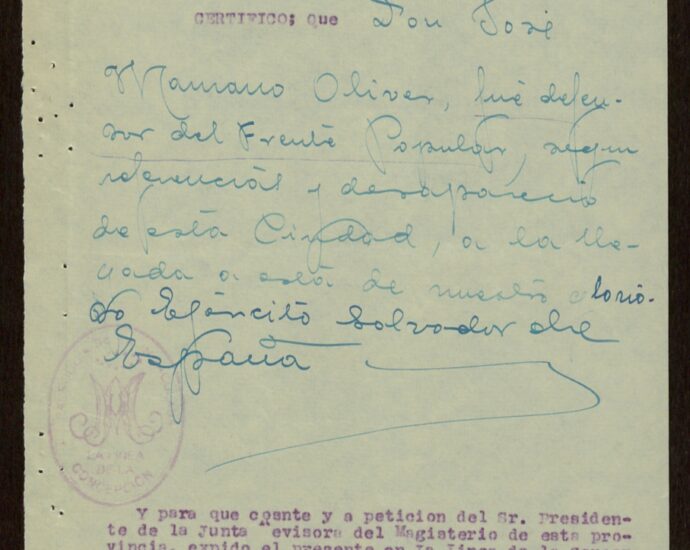 CERTIFICO; que Don José
Mamano Oliver, fué defen-
sor del Frente Popular, según
referencias y desapareció
de esta Ciudad, a la lle-
gada a esta de nuestro glorio-
so Ejército Salvador de
España
LA LINEA
DE LA
CONCEPCION
Y para que cosnte y a peticion del Sr. Presiden-
te de la Junta evisora del Magisterio de esta pro-
vincia, expido el presente en La Linea de la